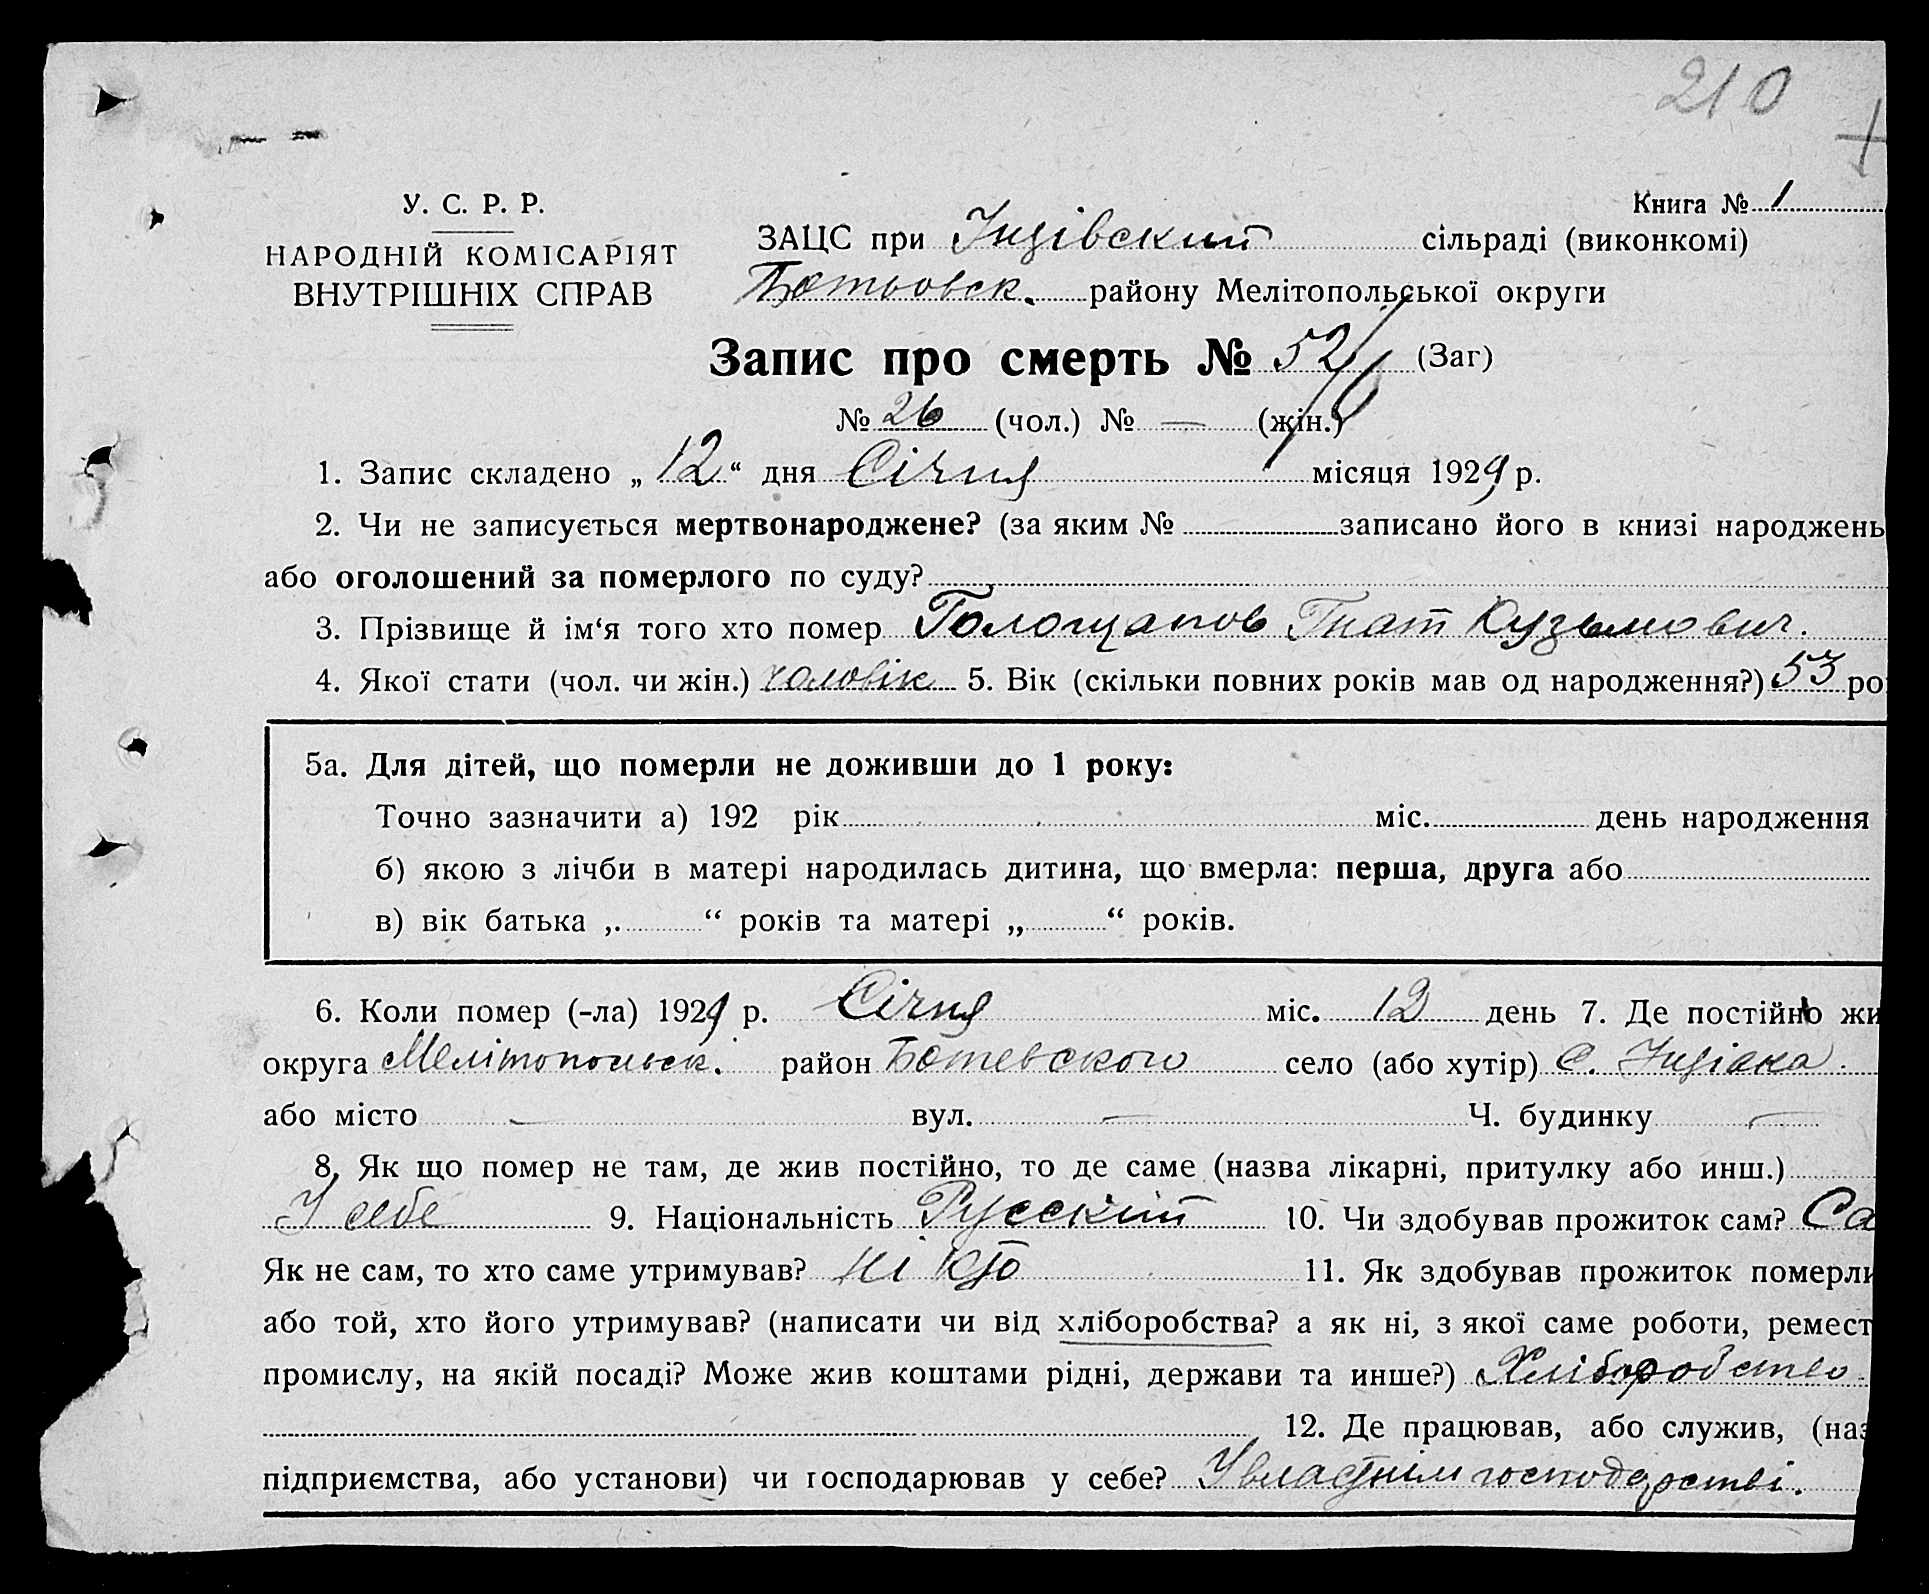 210
Книга № 1
У. С. Р. Р.
НАРОДНІЙ КОМІСАРІЯТ
ВНУТРІШНІХ СПРАВ
ЗАЦС при Інзівский сільраді (виконкомі)
Ботьовск. району Мелітопольської округи
Запис про смерть № 52/6 (Заг)
№ 26 (чол.) № — (жін.)
1. Запис складено „ 12 “ дня Січня місяця 1929 р.
2. Чи не записується мертвонароджене? (за яким № записано його в книзі народжень
або оголошений за померлого по суду?
3. Прізвище й ім‘я того хто помер Голощапов Гнат Кузьмович.
4. Якої стати (чол. чи жін.) чоловік 5. Вік (скільки повних років мав од народження?) 53 ро
5а. Для дітей, що померли не доживши до 1 року:
Точно зазначити а) 192 рік міс. день народження
б) якою з лічби в матері народилась дитина, що вмерла: перша, друга або
в) вік батька „ “ років та матері „ “ років.
6. Коли помер (-ла) 1929 р. Січня міс. 12 день 7. Де постійно жи
округа Мелітопольск. район Ботевского село (або хутір) с. Інзівка
або місто — вул. — Ч. будинку —
8. Як що помер не там, де жив постійно, то де саме (назва лікарні, притулку або инш.)
У себе 9. Національність Русский 10. Чи здобував прожиток сам? Са
Як не сам, то хто саме утримував? ні кто 11. Як здобував прожиток померли
або той, хто його утримував? (написати чи від хліборобства? а як ні, з якої саме роботи, ремест
промислу, на якій посаді? Може жив коштами рідні, держави та инше?) Хліборобство
12. Де працював, або служив, (наз
підприємства, або установи) чи господарював у себе? У властнім господарстві.